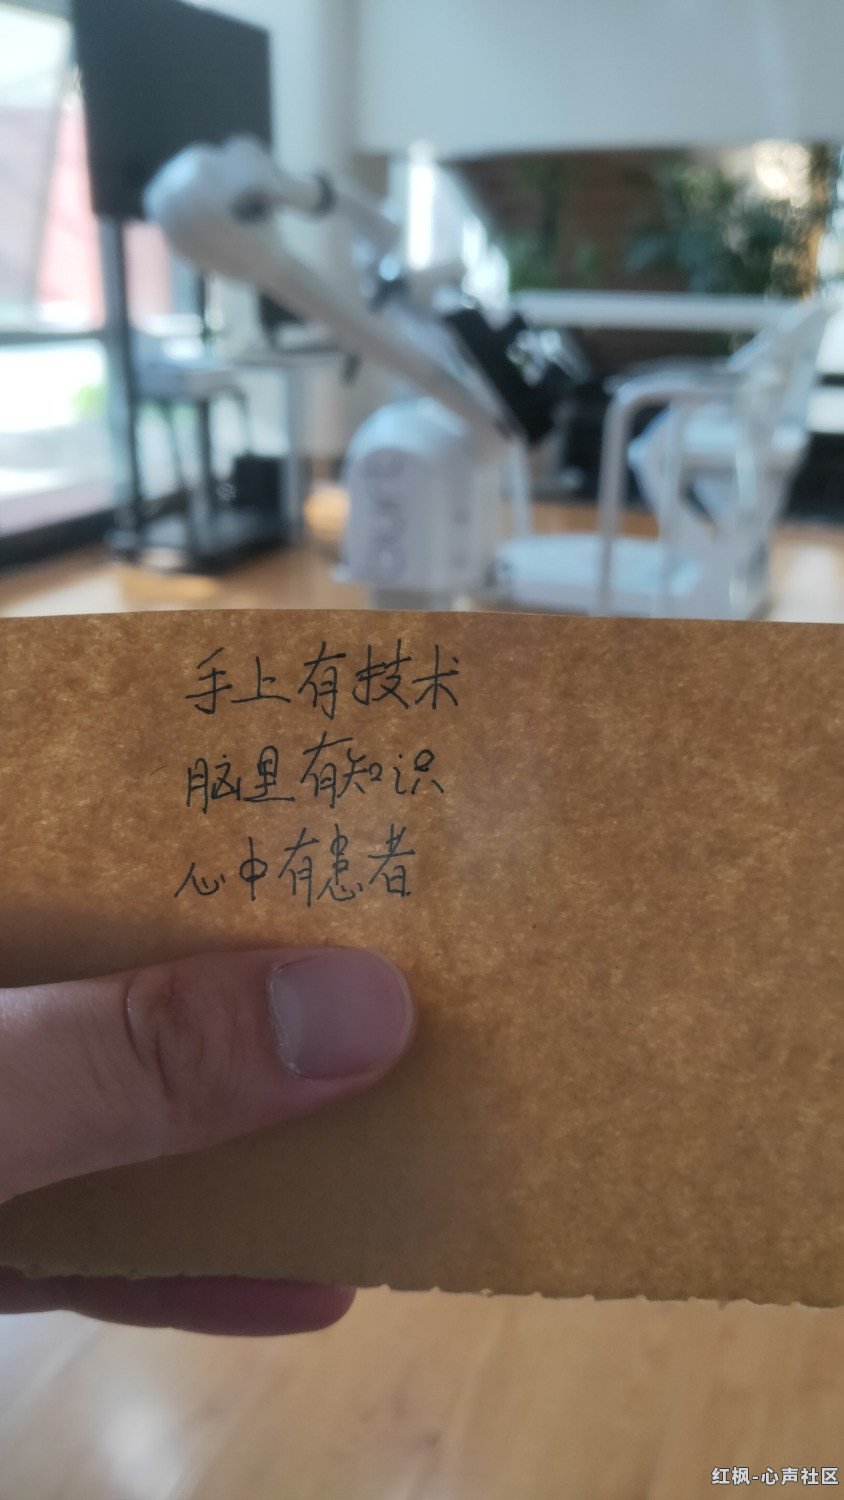 手上有技术
脑里有知识
心中有患者
红枫-心声社区